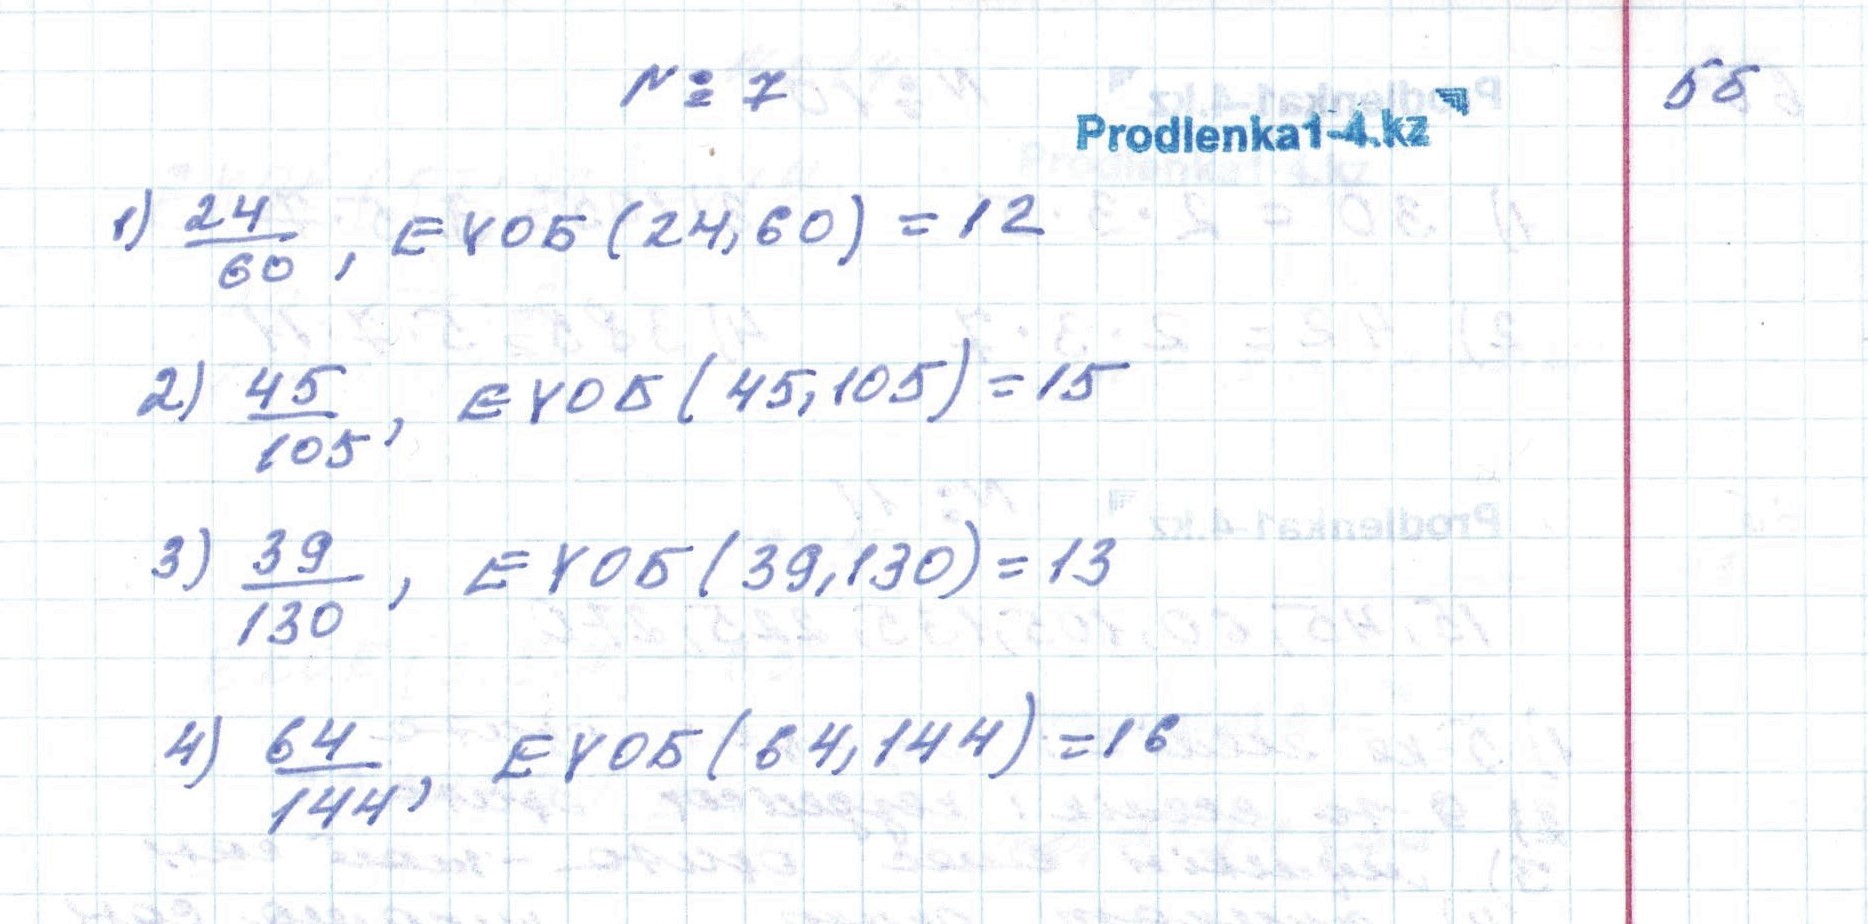 № 7
Prodlenka1-4.kz
55
1) 24/60, ЕҮОБ(24,60) = 12
2) 45/105, ЕҮОБ(45,105) = 15
3) 39/130, ЕҮОБ(39,130) = 13
4) 64/144, ЕҮОБ(64,144) = 16